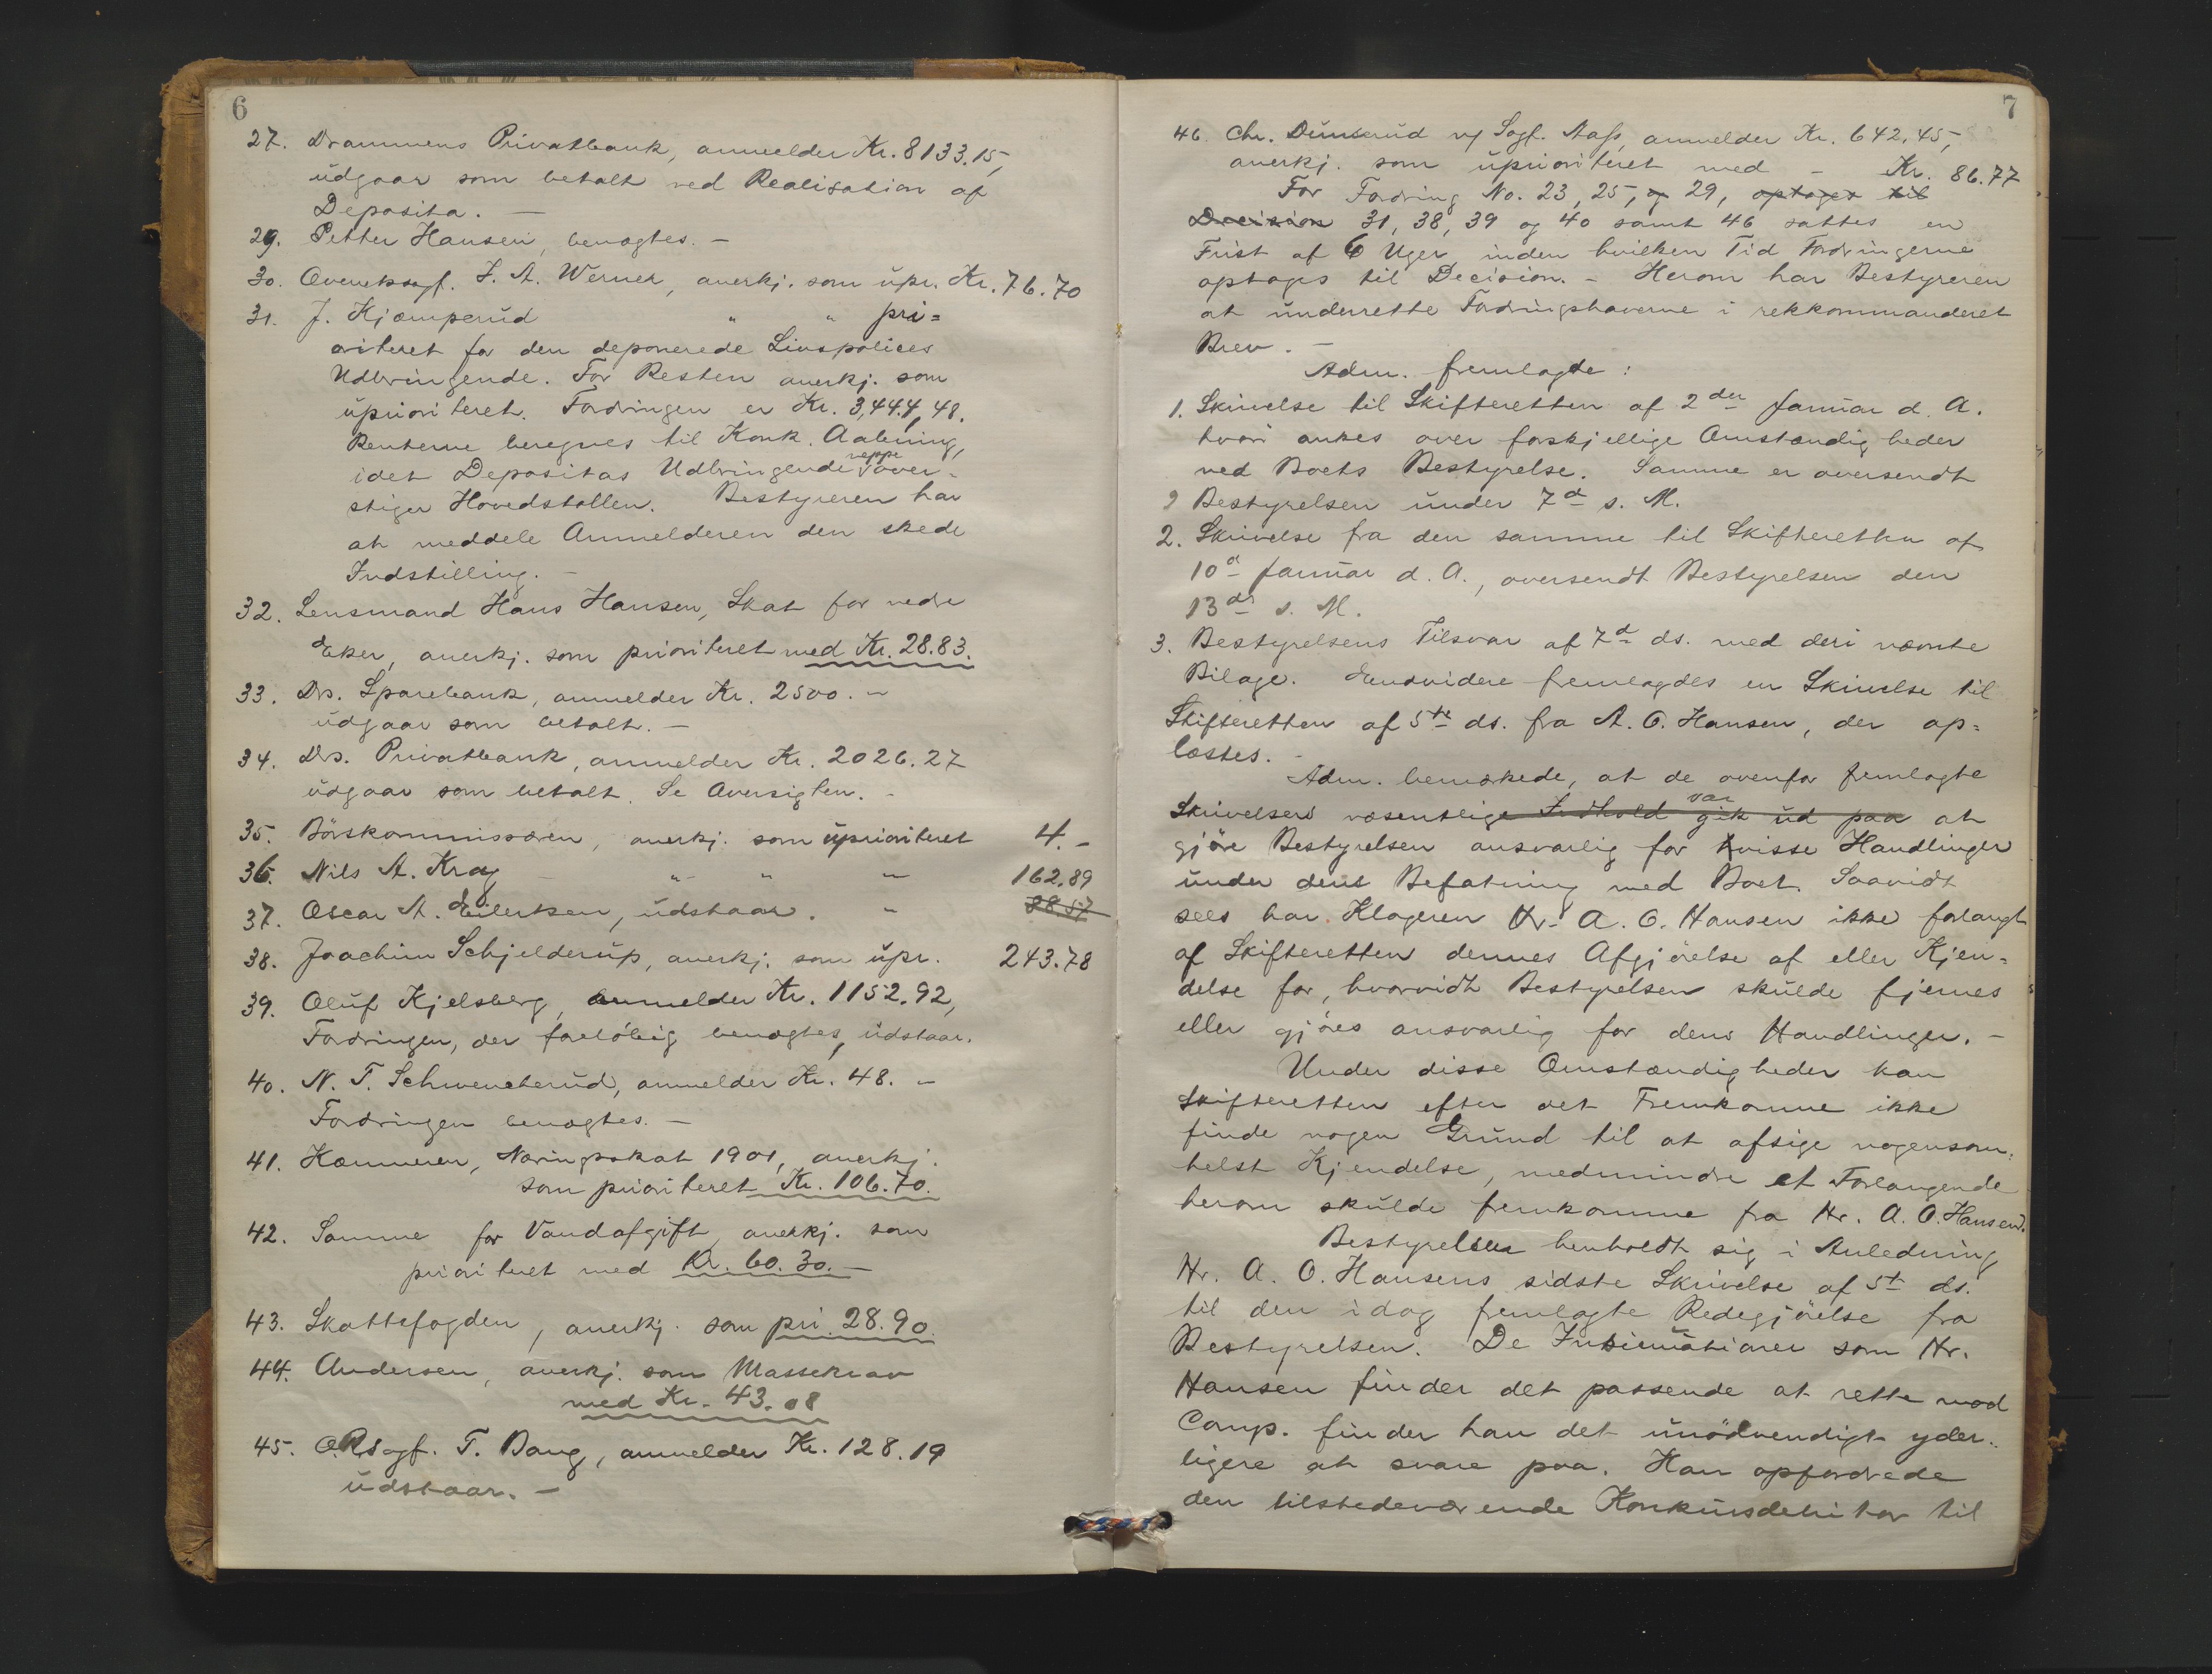 6
27. Drammens Privatbank, anmelder Kr. 8133.15,
udgaar som betalt ved Realisation af
Deposita. —
29. Petter Hansen, benægtes. —
30. Overretssagf. F. A. Werner, anerkj. som upr. Kr. 76.70
31. J. Kjæmperud " " pri=
oriteret for den deponerede Livspolices
Udbringende. For Resten anerkj. som
uprioriteret. Fordringen er Kr. 3,444,48.
Renterne beregnes til Konk. Aabning,
idet Depositas Udbringende neppe over-
stiger Hovedstollen. Bestyreren har
at meddele Anmelderen den skede
Indstilling. —
32. Lensmand Hans Hansen, Skat for nedre
Eker, anerkj. som prioriteret med Kr. 28.83.
33. Drs. Sparebank, anmelder Kr. 2500. —
udgaar som betalt. —
34. Drs. Privatbank, anmelder Kr. 2026.27
udgaar som betalt. Se Oversigten. —
35. Börskommissæren, anerkj. som uprioriteret 4.—
36. Nils A. Krag — " " — 162.89
37. Oscar A. Eilertsen, udstaar. — 28.57
38. Joachim Schjelderup, anerkj. som upr. 243.78
39. Oluf Kjelsberg, anmelder Kr. 1152.92,
Fordringen, der foreløbig benægtes, udstaar.
40. N. T. Schwencherud, anmelder Kr. 48. —
Fordringen benægtes. —
41. Kæmneren, Næringsskat 1901, anerkj.
som prioriteret Kr. 106.70.
42. Samme for Vandafgift anerkj. som
prioriteret med Kr. 60.30. —
43. Skattefogden, anerkj. som pri. 28.90.
44. Andersen, anerkj. som Massekrav
med Kr. 43.08
45. O.Rsagf. T. Bang, anmelder Kr. 128.19
udstaar. —
7
46. Chr. v/ Sagf. anmelder Kr. 642.45,
anerkj. som uprioriteret med — Kr. 86.77
For Fordring No. 23, 25, og 29, optages til
Decision 31, 38, 39 og 40 samt 46 sattes en
Frist af 6 Uger inden hvilken Tid Fordringerne
optages til Decision. — Herom har Bestyreren
at underrette Fordringshaverne i rekkommanderet
Brev. —
Adm. fremlagde:
1. Skrivelse til Skifteretten af 2den Januar d. A.
hvori ankes over forskjellige Omstændigheder
ved Boets Bestyrelse. Samme er oversendt
Bestyrelsen under 7d s. M.
2. Skrivelse fra den samme til Skifteretten af
10d Januar d. A., oversendt Bestyrelsen den
13de s. M.
3. Bestyrelsens Tilsvar af 7d ds. med deri nævnte
Bilage. Endvidere fremlagdes en Skrivelse til
Skifteretten af 5te ds. fra A. O. Hansen, der op=
læstes. —
Adm. bemærkede, at de ovenfor fremlagte
Skrivelsers væsentlige Indhold gik ud paa var at
gjøre Bestyrelsen ansvarlig for visse Handlinger
under dens Befatning med Boet. Saavidt
sees har Klageren Hr. A. O. Hansen ikke forlangt
af Skifteretten dennes Afgjörelse af eller Kjen=
delse for, hvorvidt Bestyrelsen skulde fjernes
eller gjöres ansvarlig for dens Handlinger. —
Under disse Omstændigheder kan
Skifteretten efter det Fremkomne ikke
finde nogen Grund til at afsige nogensom=
helst Kjendelse, medmindre et Forlangende
herom skulde fremkomme fra Hr. A. O. Hansen.
Bestyrelsen henholdt sig i Anledning
Hr. A. O. Hansens sidste Skrivelse af 5t ds.
til den idag fremlagte Redegjörelse fra
Bestyrelsen. De Insinuationer som Hr.
Hansen finder det passende at rette mod
Comp. finder han det unödvendigt yder=
ligere at svare paa. Han opfordrede
den tilstedeværende Konkursdebitor til